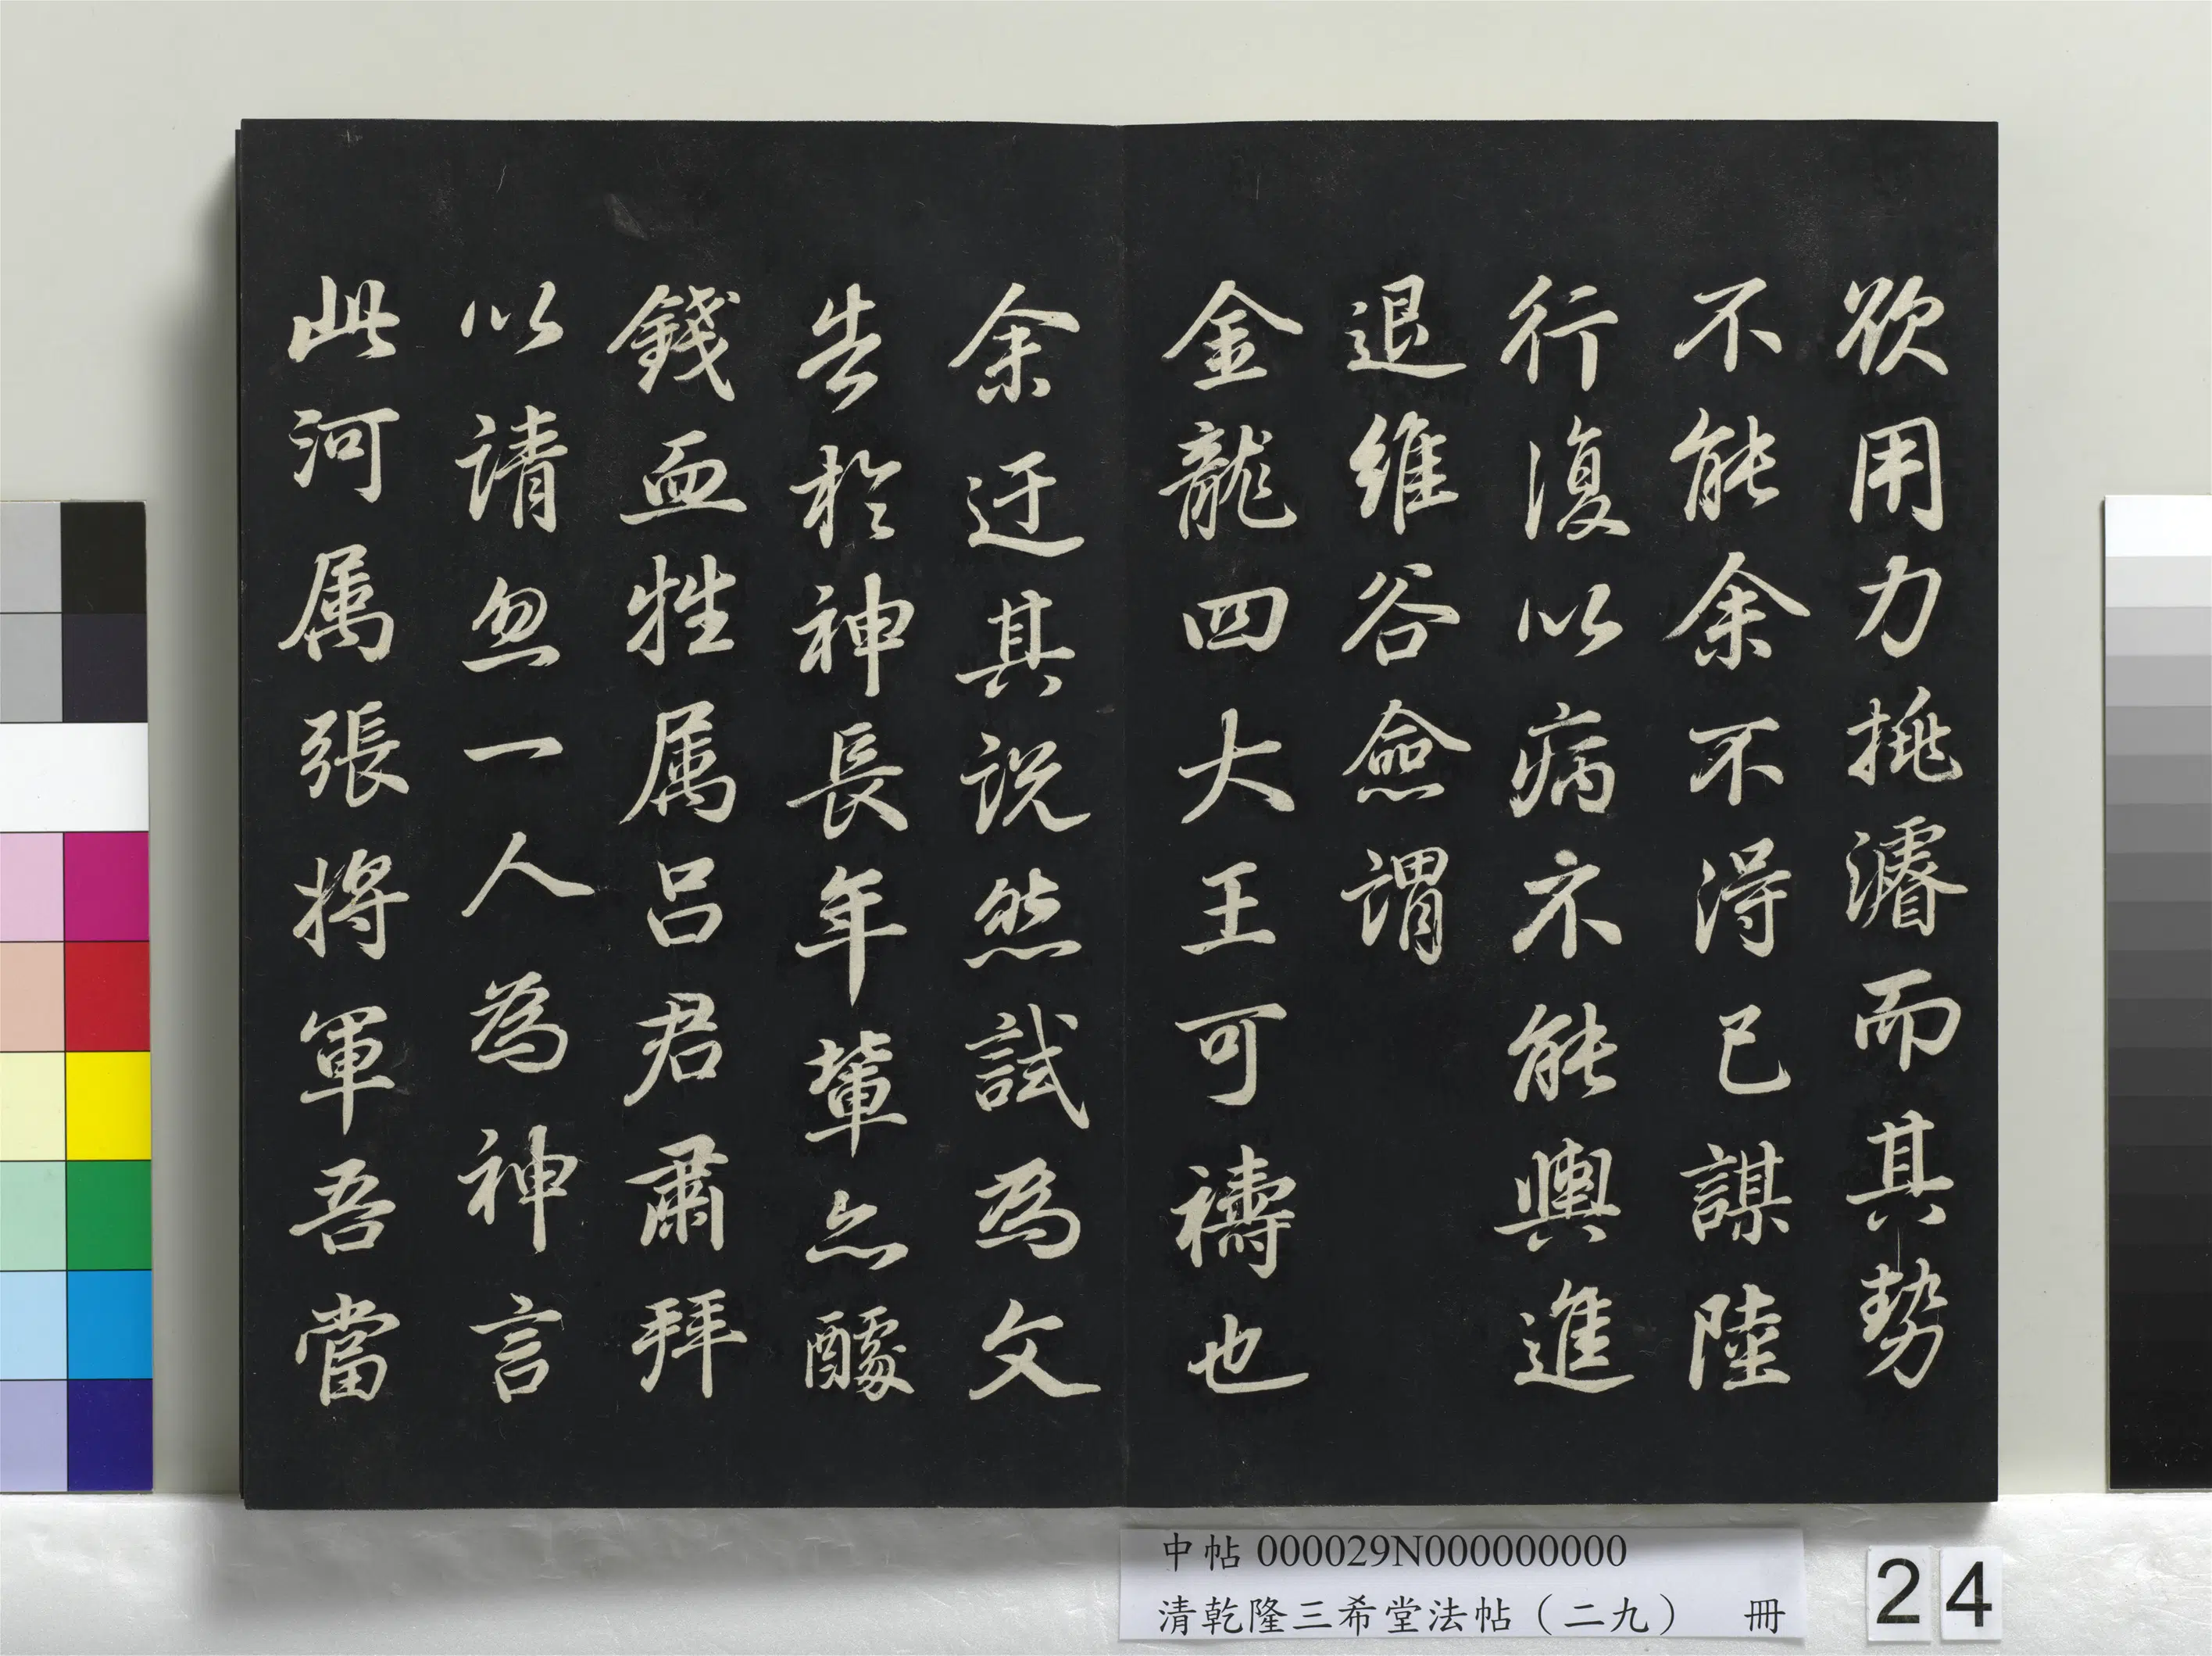 欲用力挑濬而其勢
不能余不得已謀陸
行復以病不能輿進
退維谷僉謂
金龍四大王可禱也
余迂其説然試為文
告於神長年輩亦醵
錢血牲属吕君肅拜
以请忽一人為神言
此河属張将軍吾當
中帖 000029N000000000
清乾隆三希堂法帖（二九） 冊
24